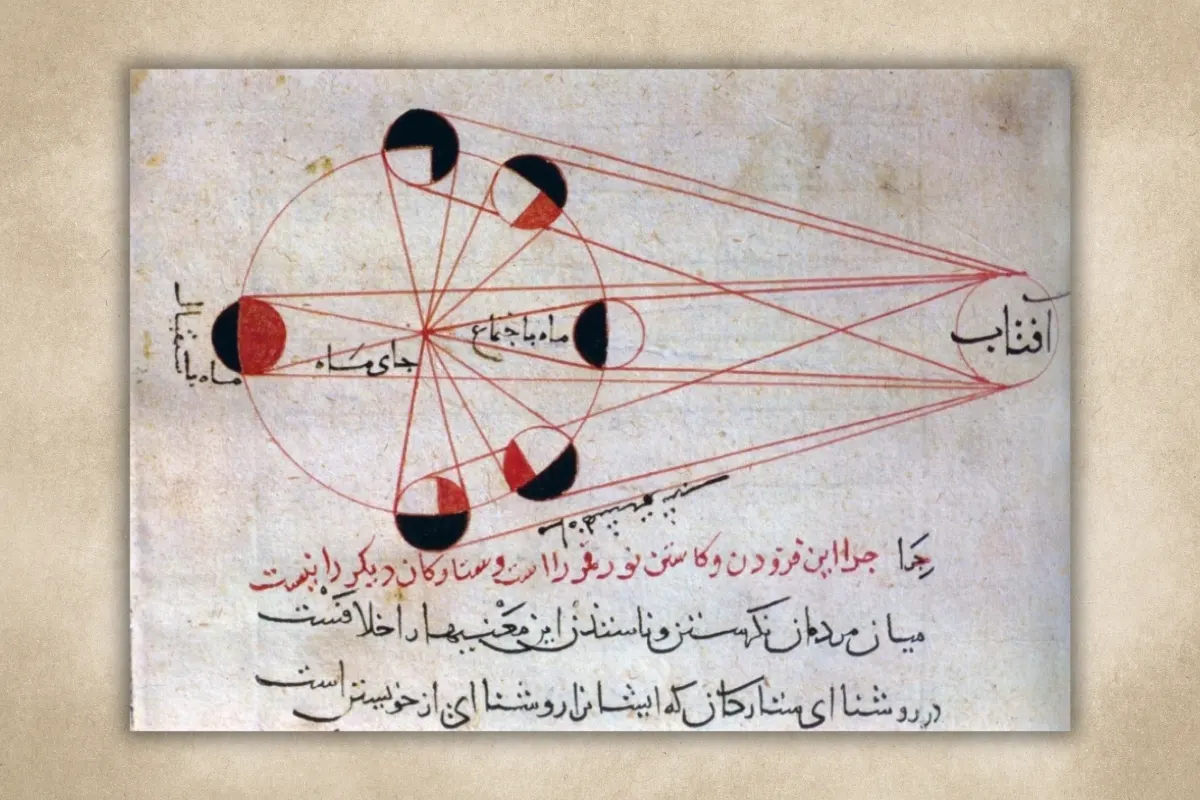 افتاب
ماه باجتماع
جای ماه
ماه باستقبال
چرا این فزودن وکاستن نور قمر را است وستارکان دیکر را نیست
میان مردمان نکرستن این بهار اخلافست
در روشنا ای ستارکان که ایشانرا روشنا ای از خویستن است